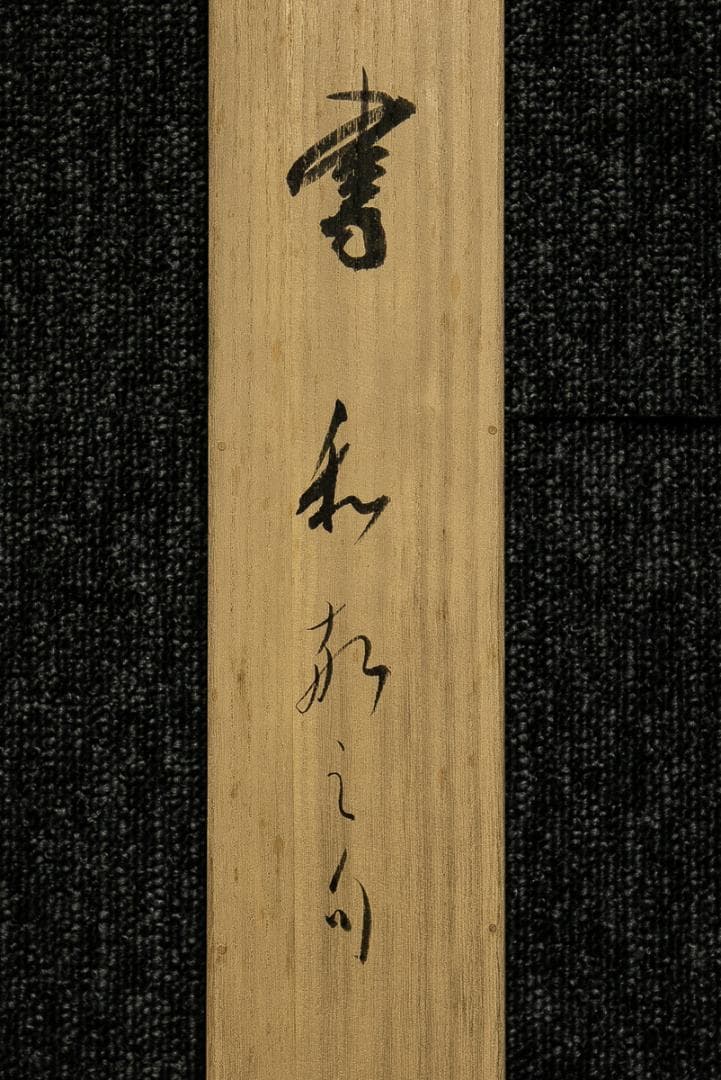 書和敬之句